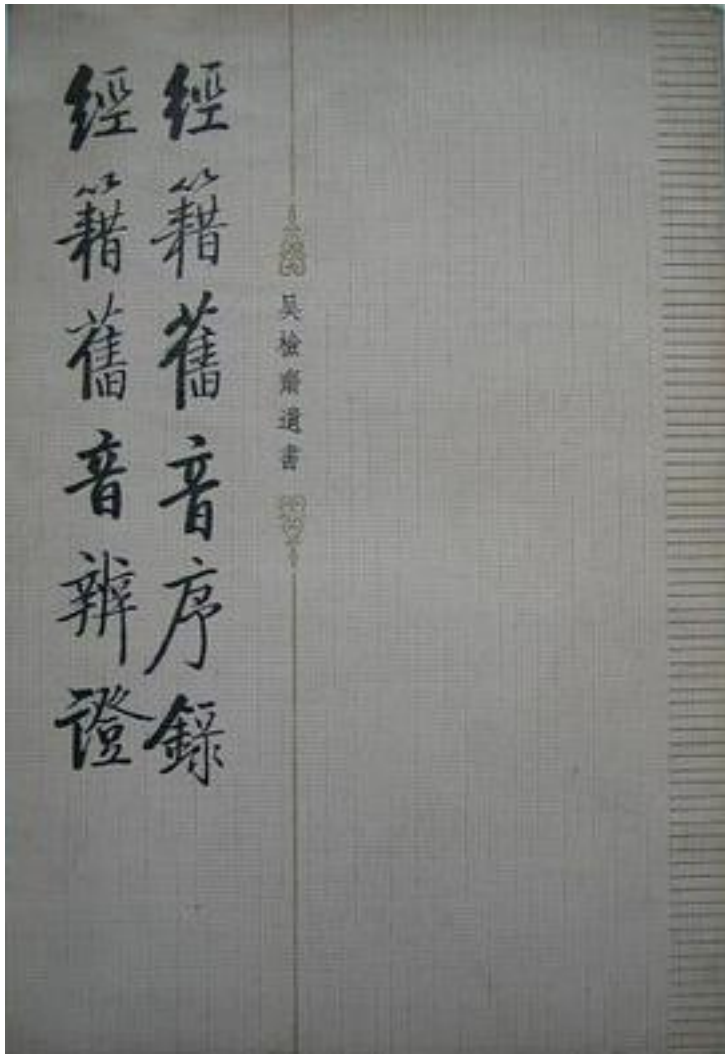 吳檢齋遺書
經籍舊音序錄
經籍舊音辨證